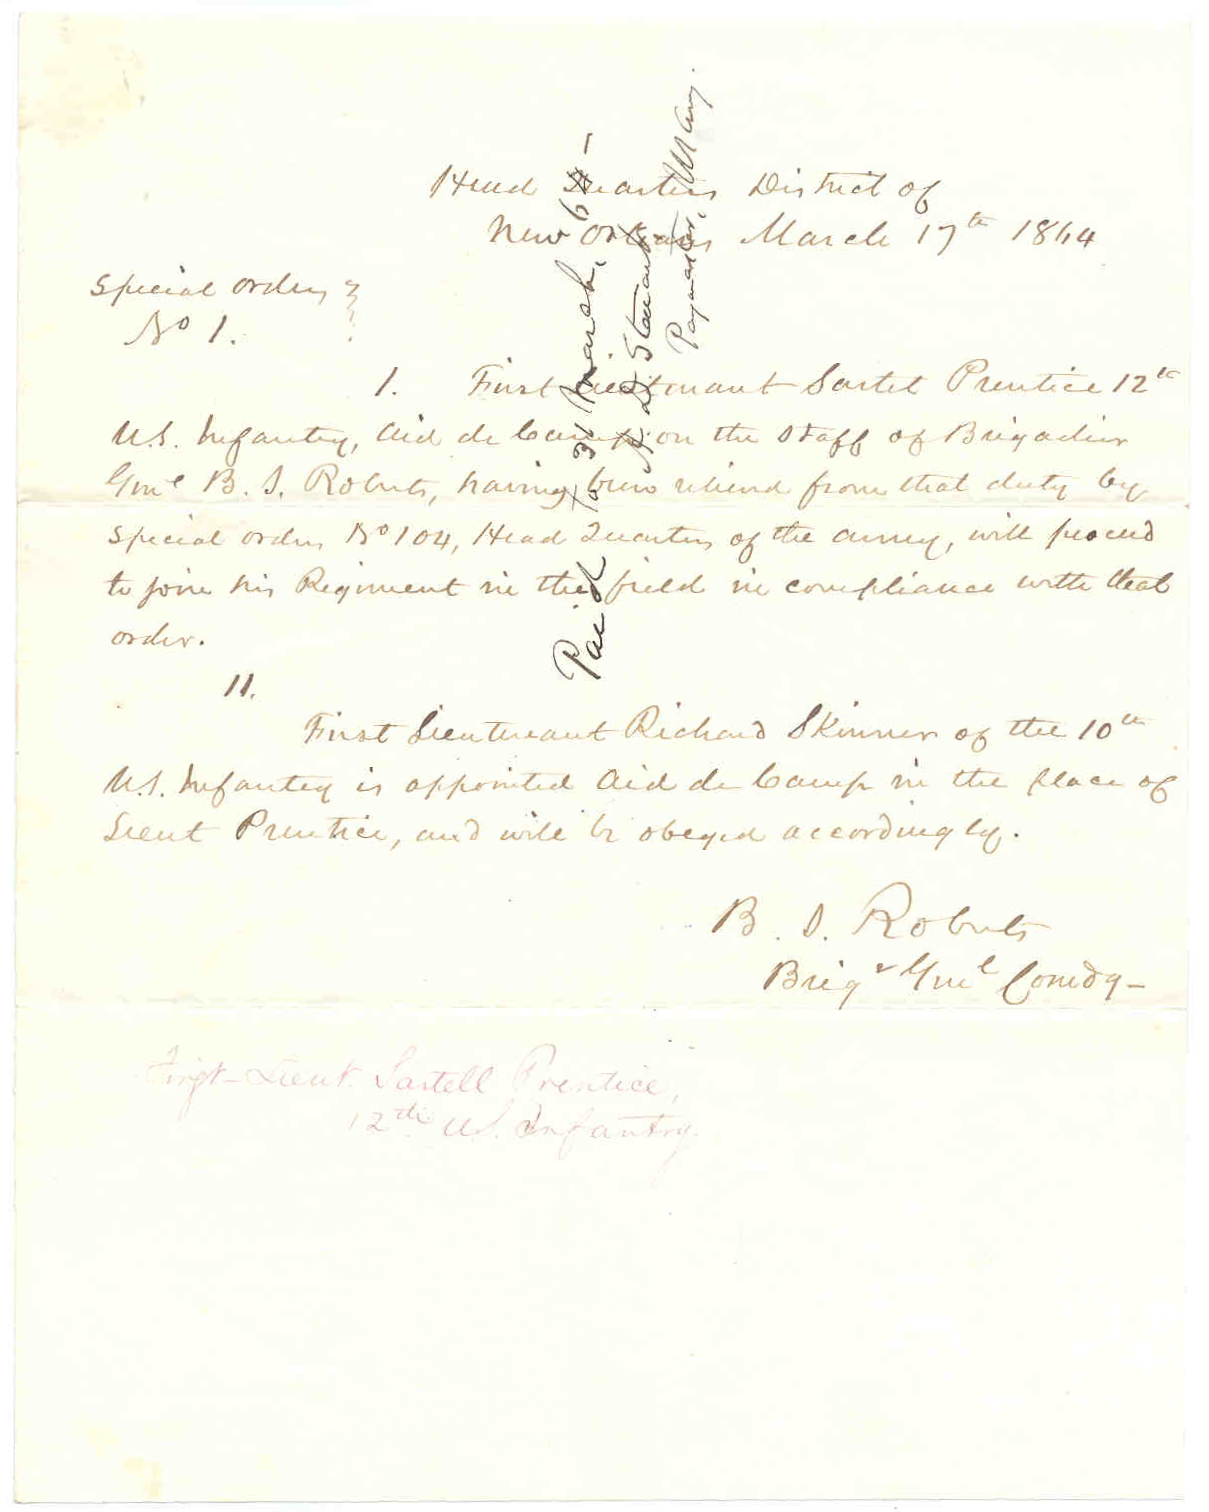 Head Quarters District of
New Orleans March 17th 1864
Special Orders
No 1.
1. First Lieutenant Sartel Prentice 12th
U.S. Infantry, Aid de Camp on the Staff of Brigadier
Genl B. S. Roberts, having been relieved from that duty by
Special orders No 104, Head Quarters of the army, will proceed
to join his Regiment in the field in compliance with that
order.
11.
First Lieutenant Richard Skinner of the 10th
U.S. Infantry is appointed Aid de Camp in the place of
Lieut Prentice, and will be obeyed accordingly.
B. S. Roberts
Brigr Genl Comdg-
First-Lieut. Sartell Prentice,
12th U.S. Infantry.
Paid to 31 March, 64-
Stewart
Paymaster,